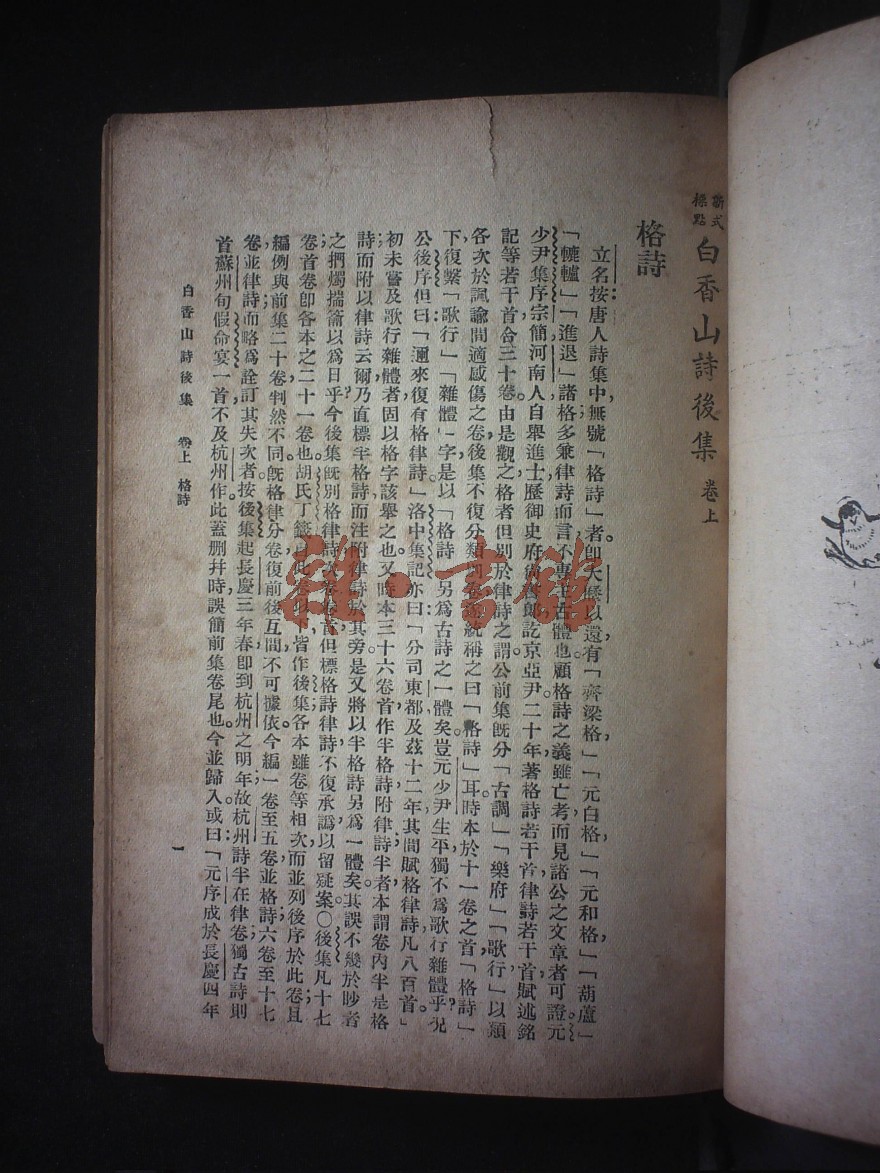 新式
標點
白香山詩後集 卷上
格詩
立名按唐人詩集中,無號「格詩」者。卽大曆以還有「齊梁格」「元白格」「元和格」「葫蘆」
「轆轤」「進退」諸格,多兼律詩而言,不專主古體也。顧格詩之義雖亡,考而見諸公之文章者可證。元
少尹集序,宗簡河南人,自舉進士,歷御史府尙書郞,訖京亞尹二十年,著格詩若干首,律詩若干首,賦述銘
記等若干首,合三十卷。由是觀之,格者但別於律詩之謂。公前集旣分「古調」「樂府」「歌行」以類
各次於諷諭閒適感傷之卷,後集不復分類別卷,遂統稱之曰「格詩」耳。時本於十一卷之首「格詩」
下復繫「歌行」「雜體」字,是以「格詩」另爲古詩之一體矣。豈元少尹生平獨不爲歌行雜體乎?況
公後序但曰:「邇來復有格律詩」洛中集記亦曰:「分司東都及茲十二年,其間賦格律詩凡八百首。」
初未嘗及歌行雜體者,固以格字該舉之也。又時本三十六卷首作半格詩附律詩,半者,本謂卷內半是格
詩而附以律詩云爾;乃直標半格詩而注附律詩於其旁,是又將以半格詩另爲一體矣。其誤不幾於眇者
之捫燭揣籥以爲日乎?今後集旣別格律詩次卷首,但標格詩律詩,不復承譌以留疑案〇後集凡十七
卷,首卷卽各本之二十一卷也。胡氏丁籤自此卷以下皆作後集,各本雖卷等相次而並列後序於此卷且
編例與前集二十卷判然不同。旣格律分卷,復前後互間不可據依。今編一卷至五卷並格詩,六卷至十七
卷並律詩,而略爲詮訂其失次者。按後集起長慶三年春,卽到杭州之明年,故杭州詩半在律卷,獨古詩則
首蘇州旬假命宴一首,不及杭州作,此蓋刪幷時誤簡前集卷尾也。今並歸入或曰:「元序成於長慶四年
白香山詩後集 卷上 格詩
一